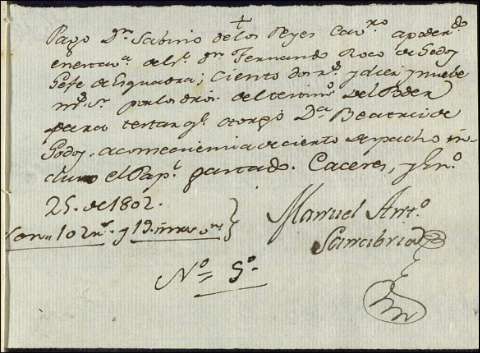 Pagó Dn. Sabino de los Reyes Cavro. apoderdo.
en esta va. del Sr. Dn. Fernando Roco de Godoy
Gefe de Esquadra; Ciento dos rs. y diez y nueve
ms. por los dros. del testimo. del Poder
para testar qe. otorgó Da. Beatriz de
Godoy, a consequencia de cierto despacho in
cluso el Papl. gastado. Caceres, y Eno.
25. de 1802.
Son 102 rs. y 19 mrs. vn.
Manuel Anto.
Sanabria
No. 5o.